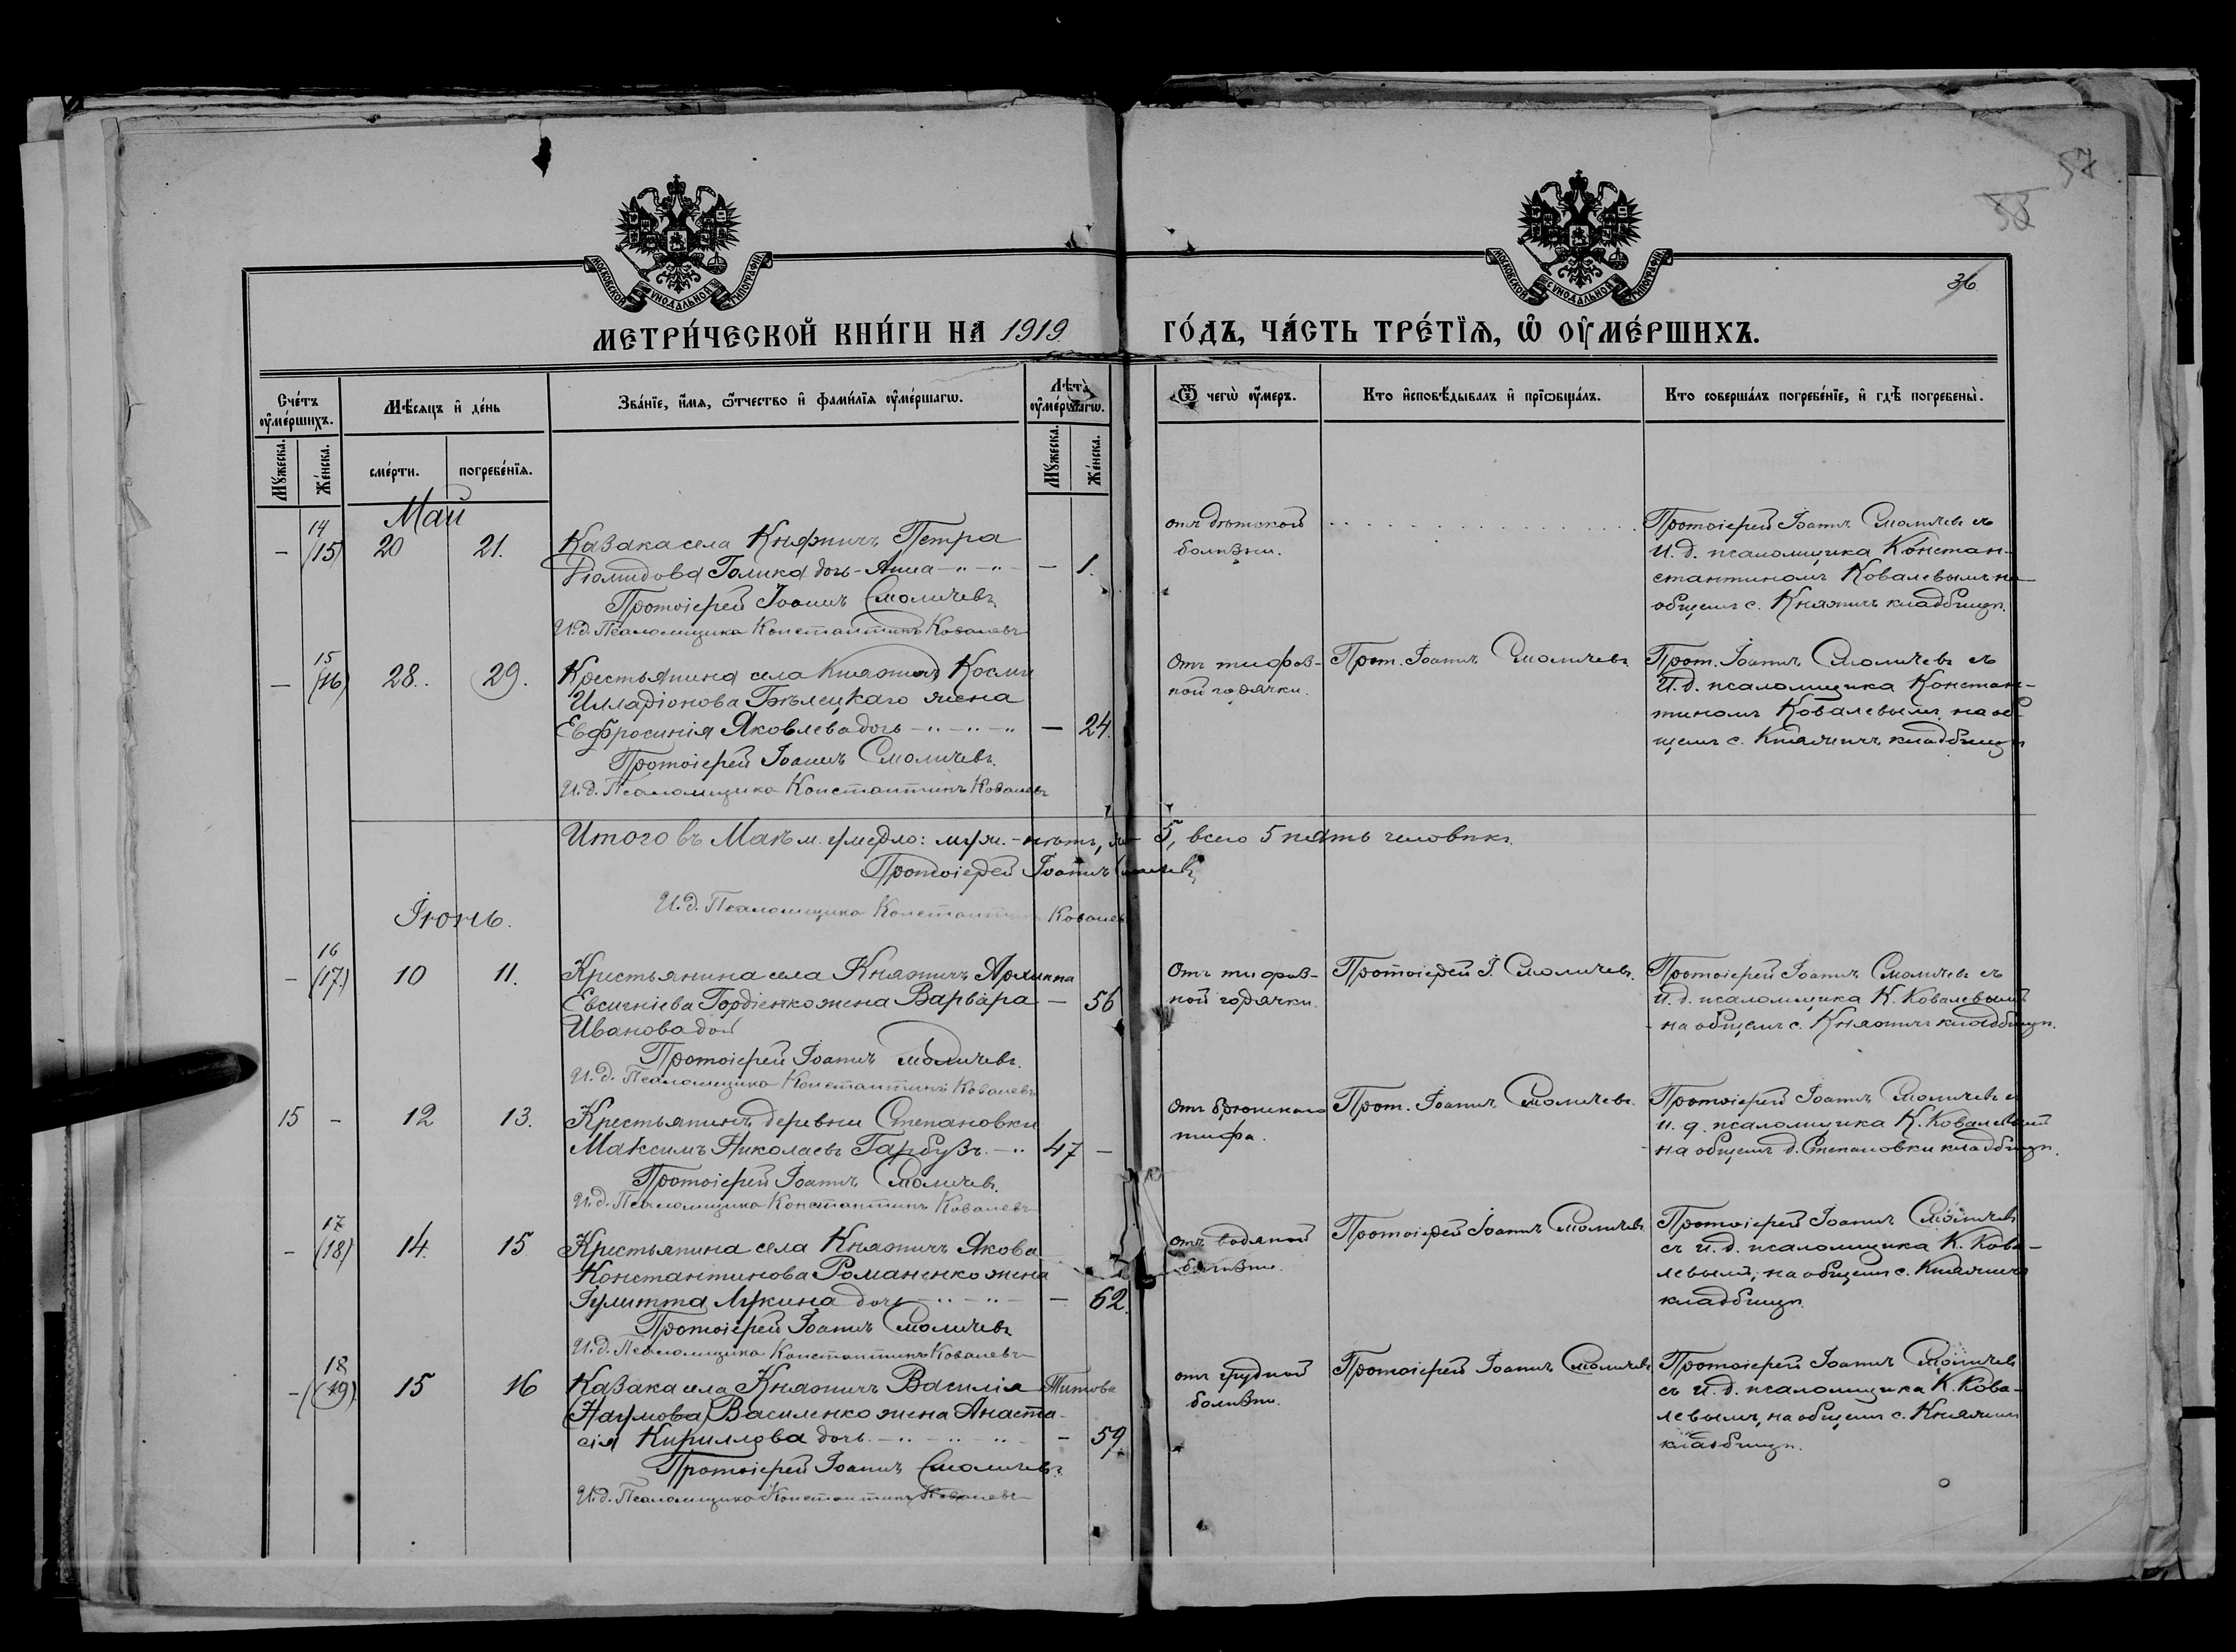 57
38
36
МОСКОВСКОЙ СѴНОДАЛЬНОЙ ТИПОГРАФІИ
МОСКОВСКОЙ СѴНОДАЛЬНОЙ ТИПОГРАФІИ
МЕТРИ́ЧЕСКОЙ КНИ́ГИ НА 1919 ГО́ДЪ, ЧА́СТЬ ТРЕ́ТЇѦ, Ѡ҆ ОУ҆МЕ́РШИХЪ.
Сче́тъ оу҆ме́ршихъ.
Мѣ́сяцъ и҆ де́нь
Зва́нїе, и҆́мѧ, ѻ҆́тчество и҆ фами́лїѧ оу҆ме́ршагѡ.
Лѣ́та оу҆ме́ршагѡ.
Ѿ чегѡ̀ оу҆́меръ.
Кто̀ и҆сповѣ́дывалъ и҆ прїѡбща́лъ.
Кто̀ соверша́лъ погребе́нїе, и҆ гдѣ̀ погребены̀.
Мꙋ́жеска.
Же́нска.
сме́рти.
погребе́нїѧ.
Мꙋ́жеска.
Же́нска.
Май
14
– (15) 20 21. Казака села Княжичъ Петра
Діомидова Голика дочь - Анна – – 1.
Протоіерей Іоаннъ Смоличевъ
И.д. Псаломщика Константинъ Ковалевъ
отъ дѣтской
болѣзни.
Протоіерей Іоаннъ Смоличевъ съ
И. д. псаломщика Констан-
стантиномъ Ковалевымъ на
общемъ с. Княжичъ кладбищѣ.
15
– (16) 28. 29. Крестьянина села Княжичъ Космы
Илларіонова Бѣлецкаго жена
Евфросинія Яковлева дочь – 24.
Протоіерей Іоаннъ Смоличевъ
И.д. Псаломщика Константинъ Ковалевъ
Отъ тифоз-
ной горячки.
Прот. Іоаннъ Смоличевъ
Прот. Іоаннъ Смоличевъ съ
И.д. псаломщика Констан-
тиномъ Ковалевымъ на об-
щемъ с. Княжичъ кладбищѣ
Итого въ Маѣ м. умерло: муж. - нѣтъ, 5, всего 5 пять человѣкъ.
Протоіерей Іоаннъ Смоличевъ
И.д. Псаломщика Константинъ Ковалевъ
Іюнь.
16
– (17) 10 11. Крестьянина села Княжичъ
Евсигніева Гордіенко жена Варвара – 56
Иванова дочь
Протоіерей Іоаннъ Смоличевъ.
И.д. Псаломщика Константинъ Ковалевъ
Отъ тифоз-
ной горячки.
Протоіерей І. Смоличевъ.
Протоіерей Іоаннъ Смоличевъ съ
И.д. псаломщика К. Ковалевымъ
на общемъ с. Княжичъ кладбищѣ.
15 – 12 13. Крестьянинъ деревни Степановки
Максимъ Николаевъ Гарбузъ. – 47 –
Протоіерей Іоаннъ Смоличевъ.
И.д. Псаломщика Константинъ Ковалевъ
Отъ брюшнаго
тифа.
Прот. Іоаннъ Смоличевъ.
Протоіерей Іоаннъ Смоличевъ съ
и. д. псаломщика К. Ковалевымъ
на общемъ д. Степановки кладбищѣ.
17
– (18) 14. 15 Крестьянина села Княжичъ Якова
Константинова Романенко жена
Іулитта Лукина дочь – 62.
Протоіерей Іоаннъ Смоличевъ
И.д. Псаломщика Константинъ Ковалевъ
отъ водяной
болѣзни.
Протоіерей Іоаннъ Смоличевъ
Протоіерей Іоаннъ Смоличевъ
съ и.д. псаломщика К. Кова-
левымъ, на общемъ с. Княжичъ
кладбищѣ.
18
– (19) 15 16 Казака села Княжичъ Василія Титова
(Наумова) Василенко жена Анаста-
сія Кириллова дочь – 59
Протоіерей Іоаннъ Смоличевъ.
И.д. Псаломщика Константинъ Ковалевъ
отъ грудной
болѣзни.
Протоіерей Іоаннъ Смоличевъ
Протоіерей Іоаннъ Смоличевъ
съ и.д. псаломщика К. Кова-
левымъ, на общемъ с. Княжичъ
кладбищѣ.